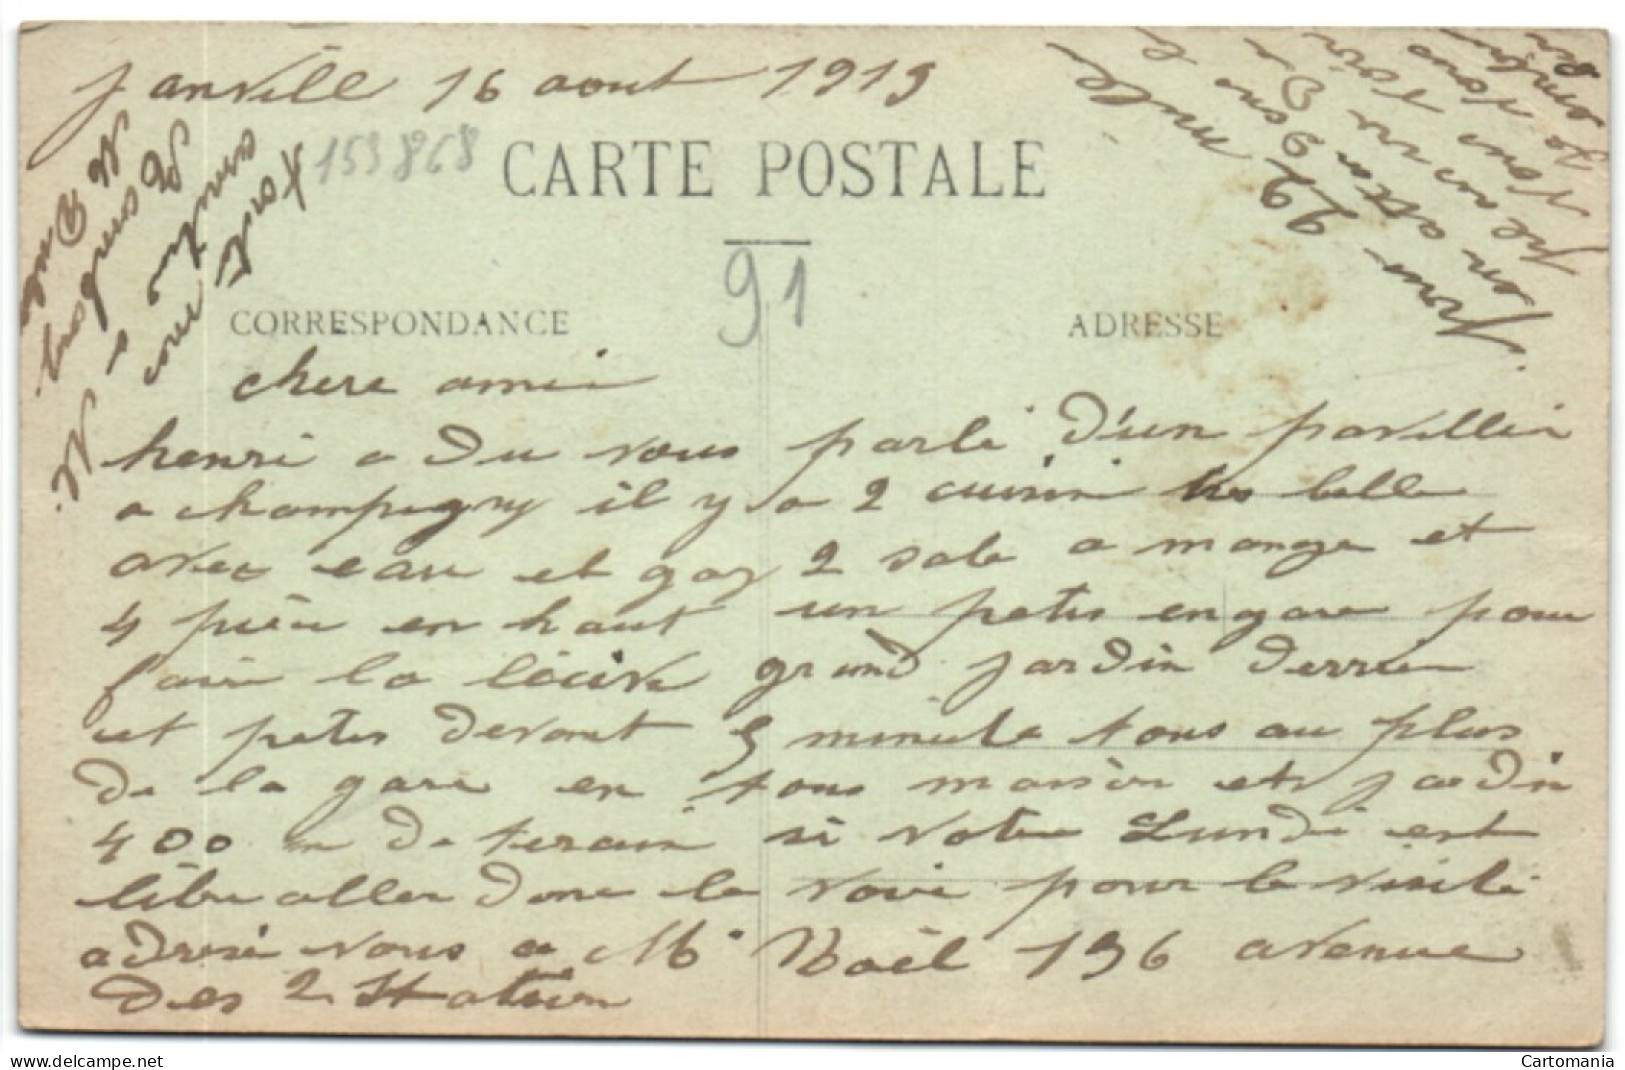 Janville 16 aout 1919
153868
CARTE POSTALE
91
CORRESPONDANCE
ADRESSE
chere amie
henri a du vous parlé d'un pavillin
a champigny il y a 2 cuisin belle
avec eau et gaz 2 sale a mange et
4 pièce en haut un petis engare pour
fair la lécive grand jardin derrier
et petis devant 5 minute tous au plus
de la gare en tous maison et jardin
400 m de terain si votre Lundi est
libre aller donc le voir pour le visité
adresé vous a Mr Noël 136 avenue
des 2 Station
22 mille
Delcampe.net
Cartomania